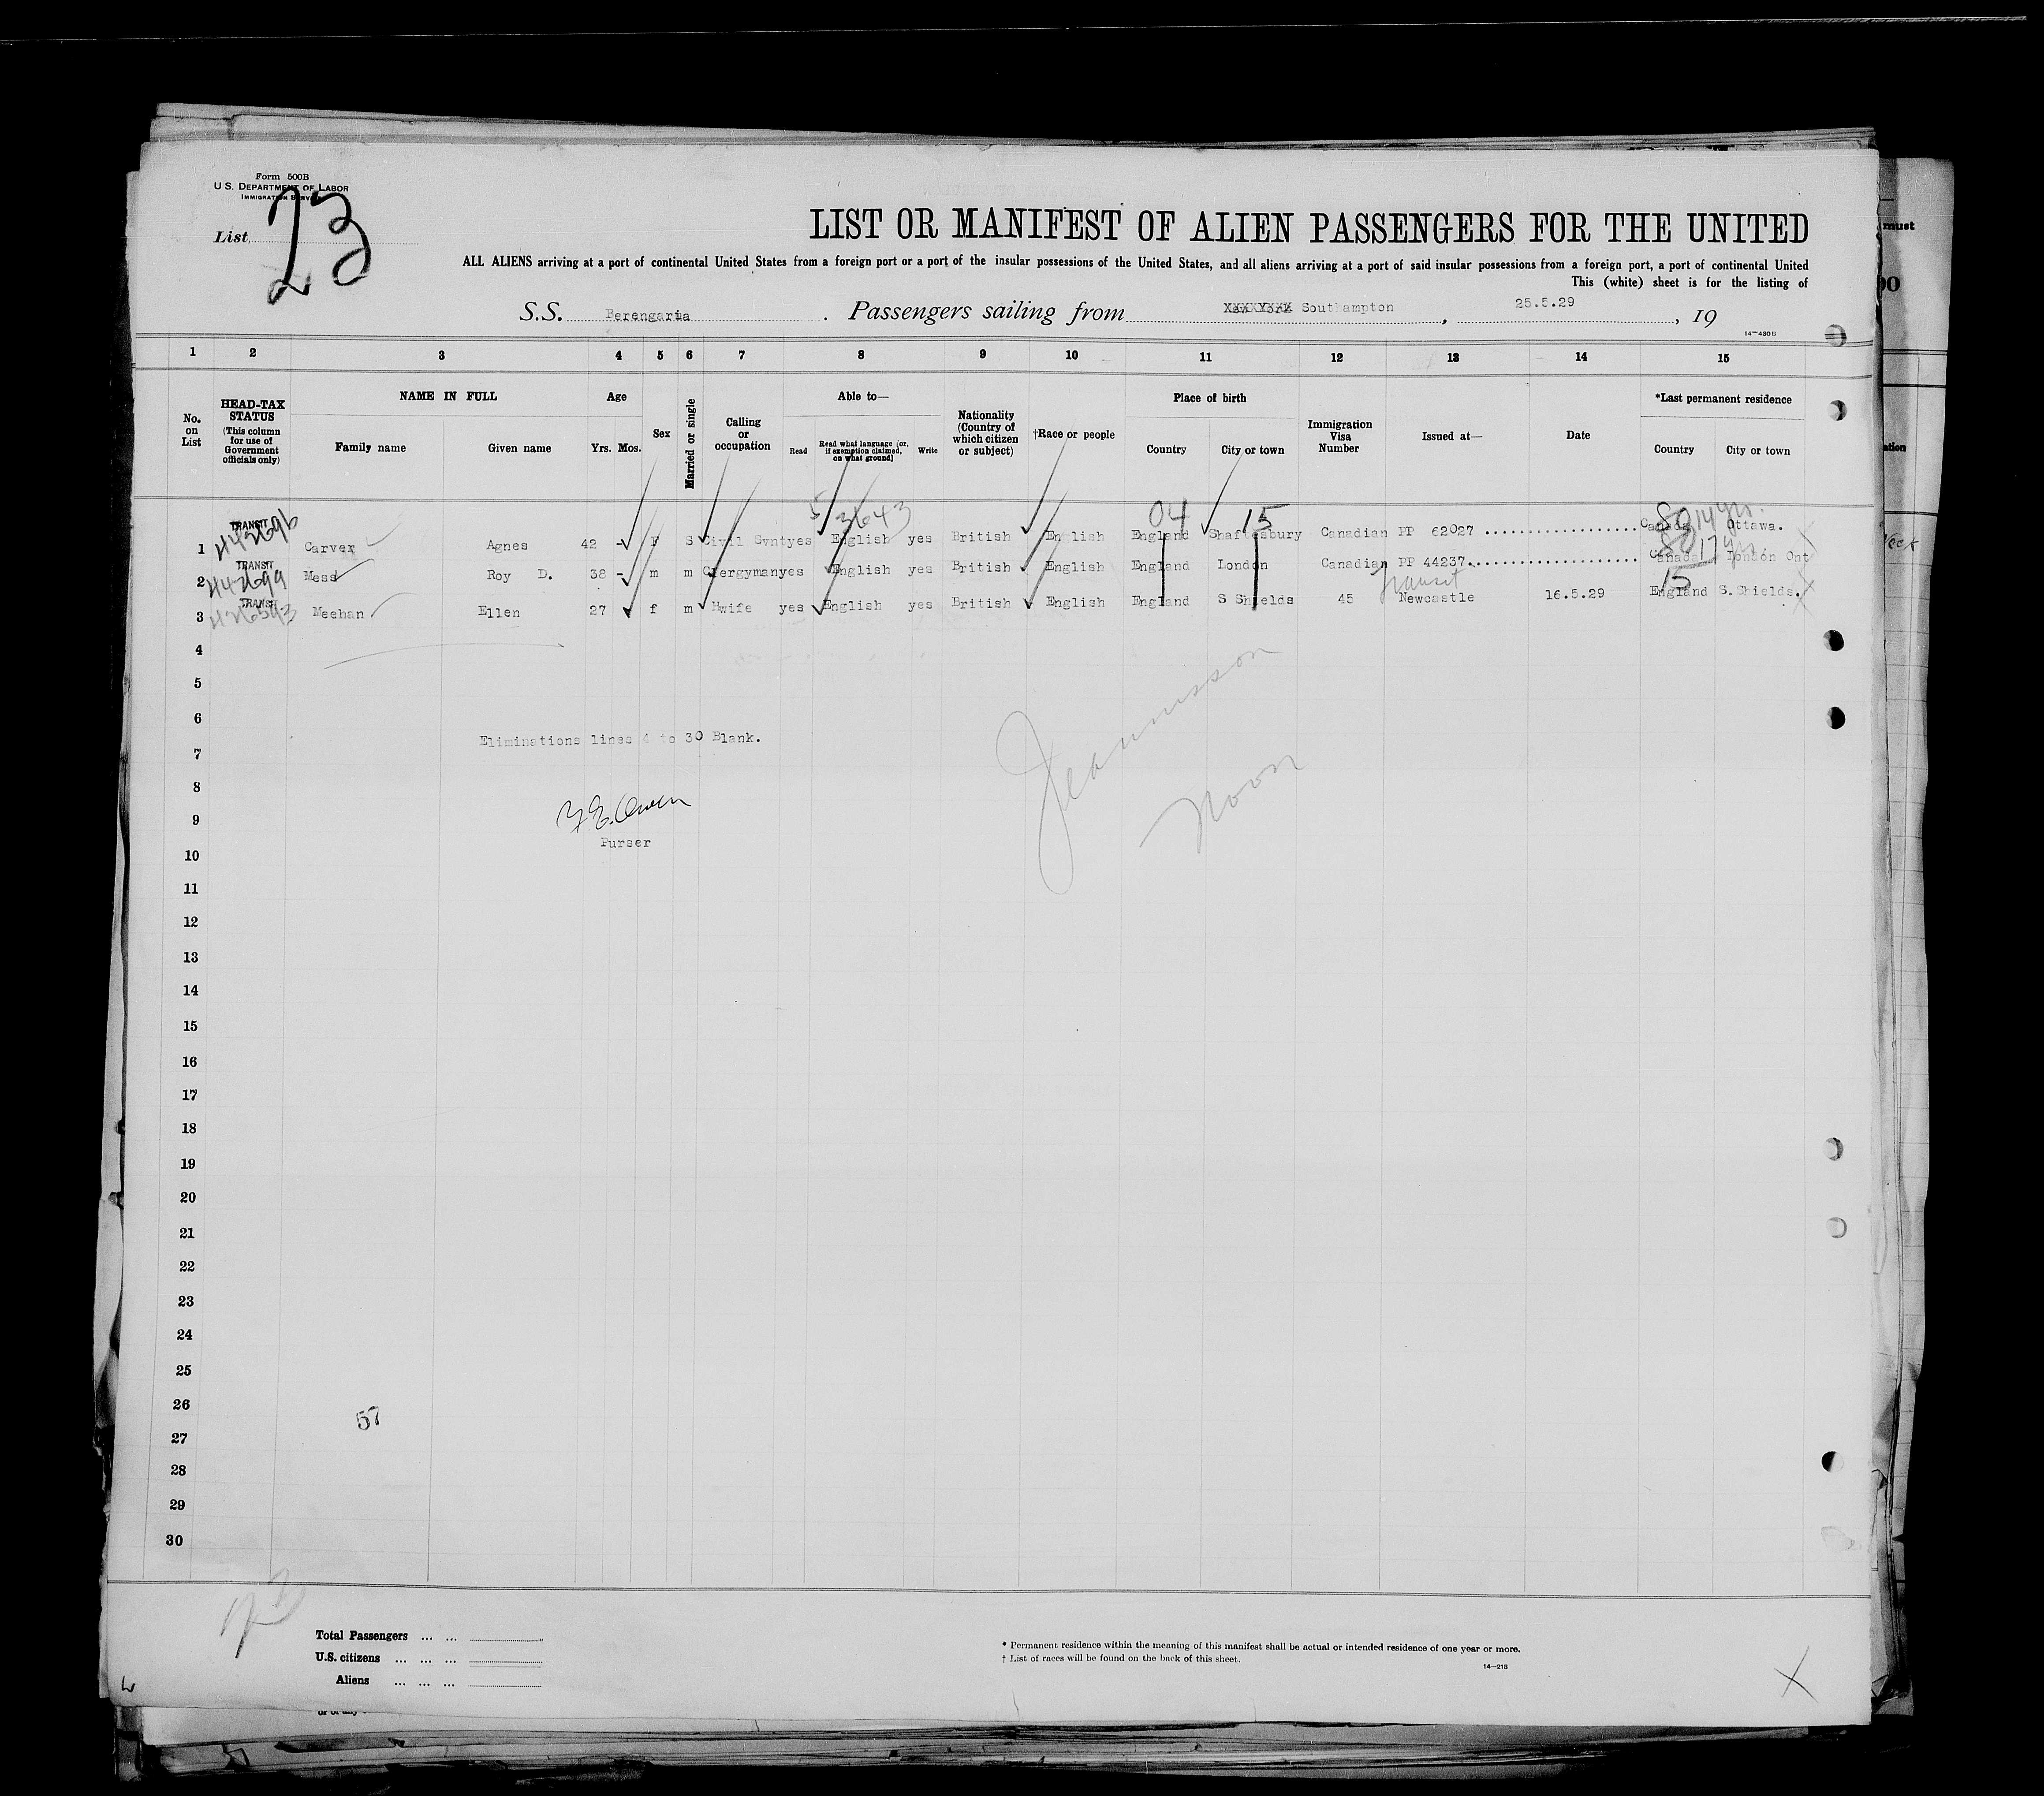 Form 500B
U.S. DEPARTMENT OF LABOR
IMMIGRATION SERVICE
List 23
LIST OR MANIFEST OF ALIEN PASSENGERS FOR THE UNITED
ALL ALIENS arriving at a port of continental United States from a foreign port or a port of the insular possessions of the United States, and all aliens arriving at a port of said insular possessions from a foreign port, a port of continental United
This (white) sheet is for the listing of
S.S. Berengaria . Passengers sailing from Southampton , 25.5.29 , 19
14—430B
1 2 3 4 5 6 7 8 9 10 11 12 13 14 15
No. on List
HEAD-TAX STATUS (This column for use of Government officials only)
NAME IN FULL
Family name Given name
Age
Yrs. Mos.
Sex
Married or single
Calling or occupation
Able to—
Read Read what language [or, if exemption claimed, on what ground] Write
Nationality (Country of which citizen or subject)
†Race or people
Place of birth
Country City or town
Immigration Visa Number
Issued at—
Date
*Last permanent residence
Country City or town
5/3643 04 15 80 14 yrs.
1 TRANSIT 442696 Carver Agnes 42 - F S Civil Svnt yes English yes British English England Shaftesbury Canadian PP 62027 Canada Ottawa.
80 17 yrs
2 TRANSIT 442699 Mess Roy D. 38 - m m Clergyman yes English yes British English England London Canadian PP 44237 Canada London Ont
Transit 15
3 TRANSIT 426593 Meehan Ellen 27 f m Hwife yes English yes British English England S Shields 45 Newcastle 16.5.29 England S.Shields.
4
5
6
Eliminations lines 4 to 30 Blank.
7
8
9
Purser
10
Noon
11
12
13
14
15
16
17
18
19
20
21
22
23
24
25
26
57
27
28
29
30
Total Passengers ... ...
U.S. citizens ... ... ...
Aliens ... ... ...
* Permanent residence within the meaning of this manifest shall be actual or intended residence of one year or more.
† List of races will be found on the back of this sheet.
14—218
X
must